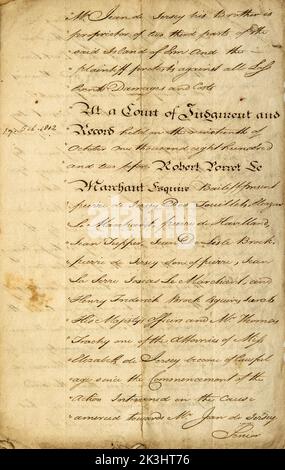 Mr Jean de Jersey his Brother is
proprietor of two third parts of the
said Island of Erm And the
plaintiff protests against all Loss
Damages and Costs
At a Court of Judgment and
Record held on the nineteenth of
October one thousand eight hundred
and two before Robert Porret Le
Marchant Esquire Bailiff present
pierre de Jersey
Le Marchant, pierre de Havilland,
Jean Tupper, Jean De Lisle Brock,
pierre de Jersey son of pierre, Jean
La Serre Josias Le Marchant, and
Henry Frederick Brock Esquires Jurats
His Majestys Officers and Mr Thomas
one of the Attornies of Miss
Elizabeth de Jersey become of lawful
age since the Commencement of the
Action Intervened in the Cause
amerced towards Mr Jean de Jersey
Senior
19 Oct. 1802
alamy
2K3HT76